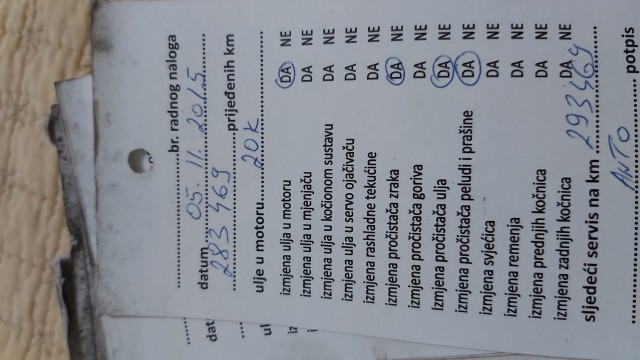 br. radnog naloga
datum 05. 11. 2015
283 469 prijeđenih km
ulje u motoru 20K
izmjena ulja u motoru DA NE
izmjena ulja u mjenjaču DA NE
izmjena ulja u kočionom sustavu DA NE
izmjena ulja u servo ojačivaču DA NE
izmjena rashladne tekućine DA NE
izmjena pročistača zraka DA NE
izmjena pročistača goriva DA NE
Izmjena pročistača ulja DA NE
izmjena pročistača peludi i prašine DA NE
izmjena svjećica DA NE
izmjena remenja DA NE
izmjena prednjih kočnica DA NE
izmjena zadnjih kočnica DA NE
sljedeći servis na km 293469
ANTO potpis